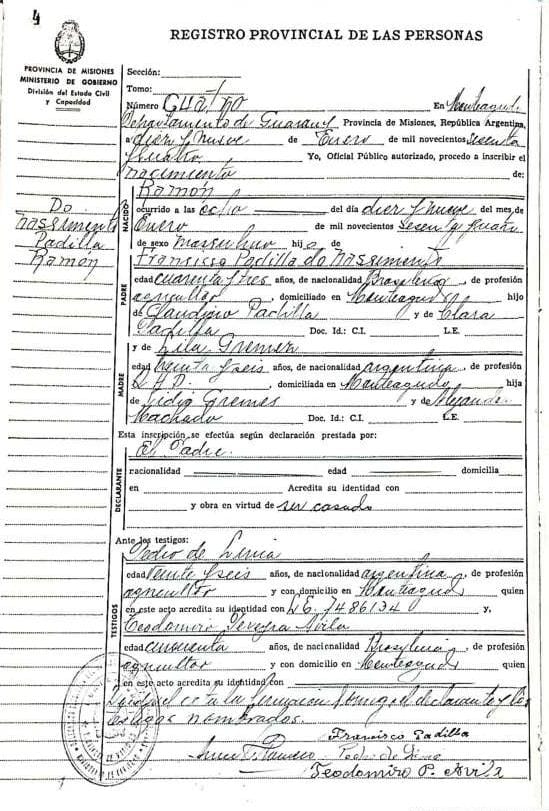 4
REGISTRO PROVINCIAL DE LAS PERSONAS
PROVINCIA DE MISIONES
MINISTERIO DE GOBIERNO
División del Estado Civil
y Capacidad
Do
Nassimento
Padilla
Ramón
Sección:
Tomo:
Número Cuatro En Monteagudo
Departamento de Guaraní Provincia de Misiones, República Argentina,
a diez y nueve de Enero de mil novecientos sesenta
y cuatro Yo, Oficial Público autorizado, procedo a inscribir el
nacimiento de:
NACIDO
Ramón
ocurrido a las ocho del día diez y nueve del mes de
Enero de mil novecientos sesenta y cuatro
de sexo masculino hijo de
Francisco Padilla do Nassimento
PADRE
edad cuarenta y tres años, de nacionalidad Brasylena, de profesión
agricultor, domiciliado en Monteagudo hijo
de Claudino Padilla y de Clara
Padilla Doc. Id.: C.I. L.E.
y de Lila
MADRE
edad y seis años, de nacionalidad argentina, de profesión
domiciliada en Monteagudo hija
de y de
Machado Doc. Id.: C.I. L.E.
Esta inscripción se efectúa según declaración prestada por:
DECLARANTE
El Padre
nacionalidad edad domicilia
en Acredita su identidad con
y obra en virtud de ser casado
Ante los testigos:
TESTIGOS
Pedro de
edad veinte y seis años, de nacionalidad argentina, de profesión
agricultor y con domicilio en Monteagudo quien
en este acto acredita su identidad con y,
Teodomiro Avila
edad cincuenta años, de nacionalidad Brasylena, de profesión
agricultor y con domicilio en Monteagudo quien
en este acto acredita su identidad con
el acta la firmaron conmigo el declarante y los
testigos nombrados.
Francisco Padilla
Pedro de
Teodomiro P. Avila